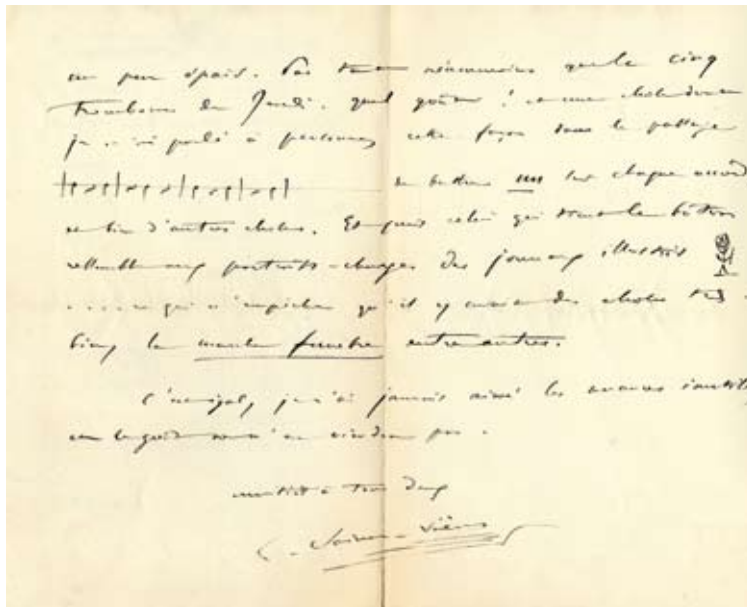 un peu épais. Pas tant néanmoins que le cinq
Trombones du Jeudi. quel goûter ! et une chose dont
je n'ai parlé à personne, cette façon dans le passage
de battre un sur chaque accord
et bien d'autres choses. Et puis celui qui tenait le bâton
ressemblait aux portraits-charges des journaux illustrés
..... ce qui n'empêche qu'il y avait des choses très
bien, la marche funèbre entre autres.
C'est égal, je n'ai jamais aimé les
pas.
amitiés à tous deux
C. Saint-Saëns